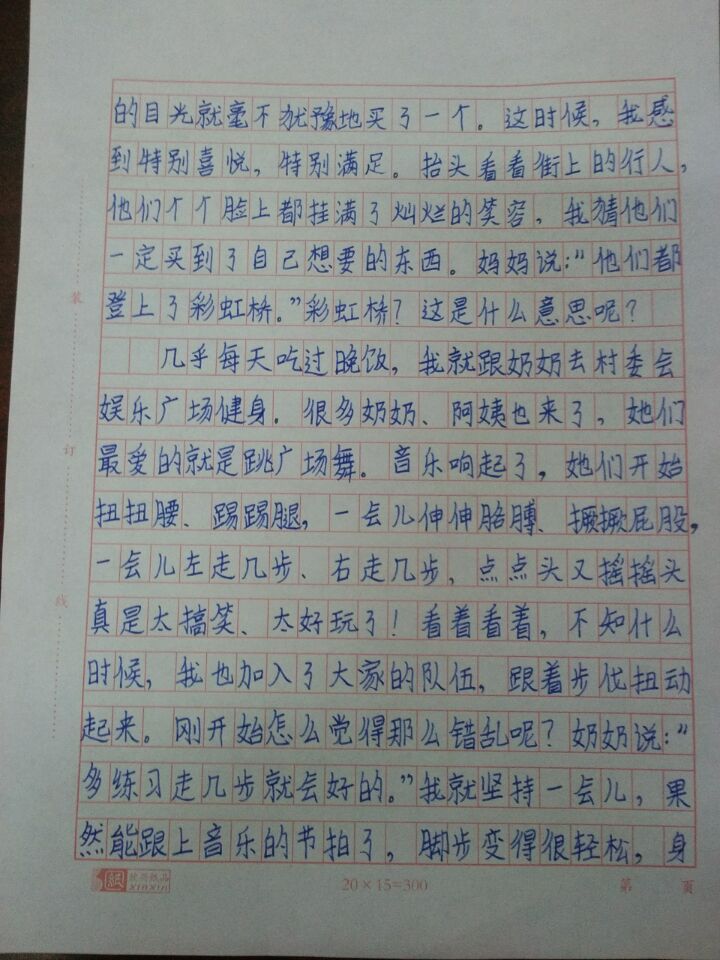 的目光就毫不犹豫地买了一个。这时候，我感
到特别喜悦，特别满足。抬头看看街上的行人，
他们个个脸上都挂满了灿烂的笑容，我猜他们
一定买到了自己想要的东西。妈妈说：“他们都
登上了彩虹桥。”彩虹桥？这是什么意思呢？
几乎每天吃过晚饭，我就跟奶奶去村委会
娱乐广场健身。很多奶奶、阿姨也来了，她们
最爱的就是跳广场舞。音乐响起了，她们开始
扭扭腰、踢踢腿，一会儿伸伸胳膊、撅撅屁股，
一会儿左走几步、右走几步，点点头又摇摇头
真是太搞笑、太好玩了！看着看着，不知什么
时候，我也加入了大家的队伍，跟着步伐扭动
起来。刚开始怎么觉得那么错乱呢？奶奶说：“
多练习走几步就会好的。”我就坚持一会儿，果
然能跟上音乐的节拍了，脚步变得很轻松，身
装
订
线
xinxin
20×15=300
第 页